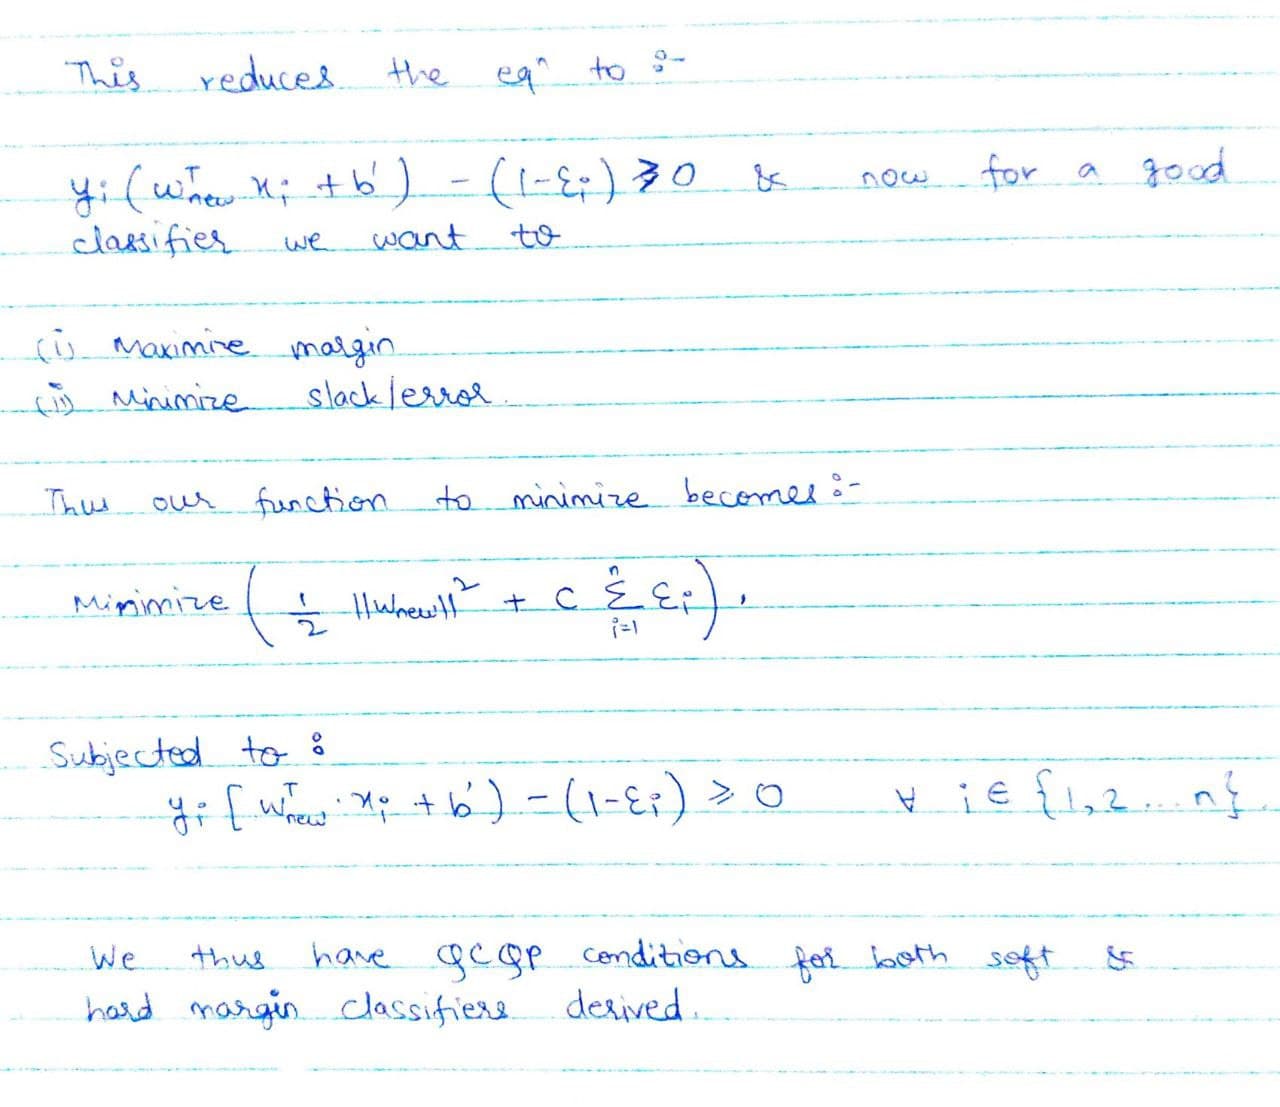 This reduces the eqⁿ to :-
yᵢ(wᵀnew xᵢ + b') - (1-εᵢ) ≥ 0 & now for a good
classifier we want to
(i) Maximize margin
(ii) Minimize slack/error.
Thus our function to minimize becomes :-
Minimize ( 1/2 ||wnew||² + C Σᵢ₌₁ⁿ εᵢ ),
Subjected to :
yᵢ [wᵀnew · xᵢ + b') - (1-εᵢ) ≥ 0 ∀ i ∈ {1,2...n}.
We thus have QCQP conditions for both soft &
hard margin classifiers derived.